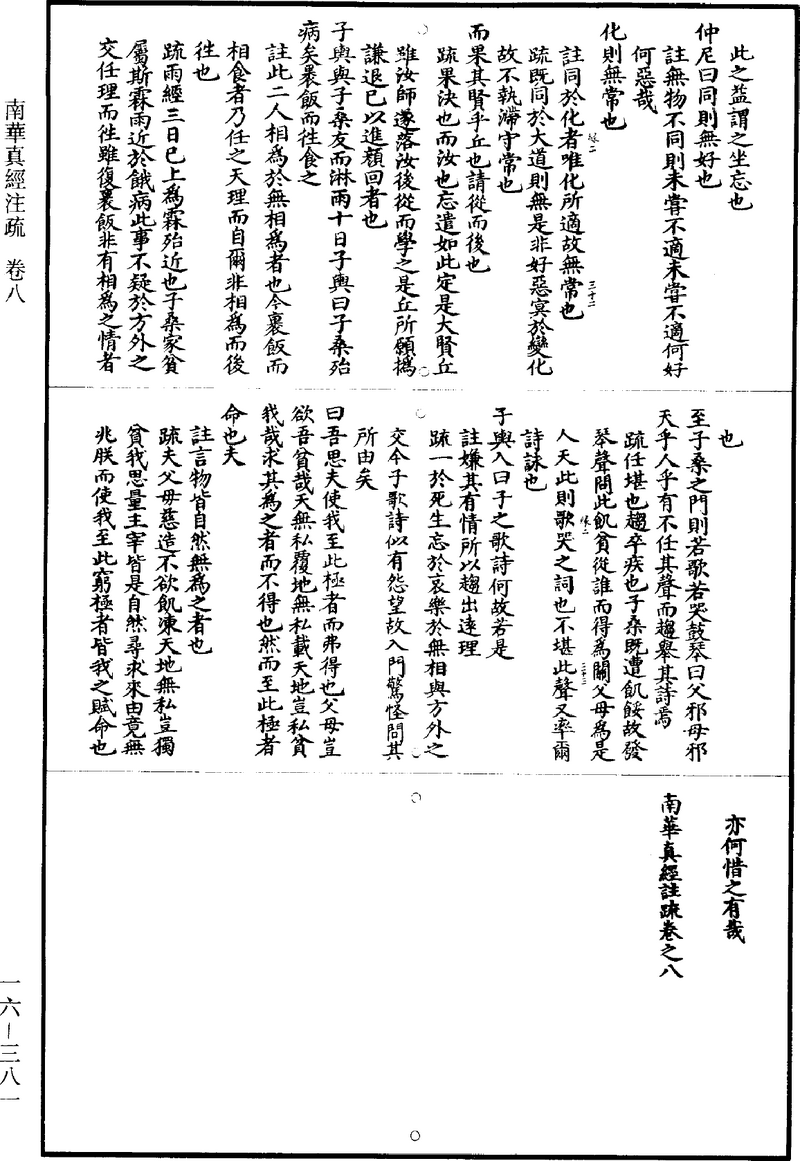 此之益謂之坐忘也
仲尼曰同則無好也
註無物不同則未嘗不適未嘗不適何好
何惡哉
化則無常也
註同於化者唯化所適故無常也
疏既同於大道則無是非好惡冥於變化
故不執滯守常也
而果其賢乎丘也請從而後也
疏果決也而汝也忘遣如此定是大賢丘
雖汝師遂落汝後從而學之是丘所願撝
謙退已以進顏回者也
子輿與子桑友而淋雨十日子輿曰子桑殆
病矣裹飯而往食之
註此二人相為於無相為者也今裹飯而
相食者乃任之天理而自爾非相為而後
往也
疏雨經三日已上為霖殆近也子桑家貧
屬斯霖雨近於餓病此事不疑於方外之
交任理而往雖復裹飯非有相為之情者
也
至子桑之門則若歌若哭鼓琴曰父邪母邪
天乎人乎有不任其聲而趨舉其詩焉
疏任堪也趨卒疾也子桑既遭飢餒故發
琴聲問此飢貧從誰而得為關父母為是
人天此則歌哭之詞也不堪此聲又率爾
詩詠也
子輿入曰子之歌詩何故若是
註嫌其有情所以趨出遠理
疏一於死生忘於哀樂於無相與方外之
交今子歌詩似有怨望故入門驚怪問其
所由矣
曰吾思夫使我至此極者而弗得也父母豈
欲吾貧哉天無私覆地無私載天地豈私貧
我哉求其為之者而不得也然而至此極者
命也夫
註言物皆自然無為之者也
疏夫父母慈造不欲飢凍天地無私豈獨
貧我思量主宰皆是自然尋求來由竟無
兆朕而使我至此窮極者皆我之賦命也
亦何惜之有哉
南華真經註疏卷之八
南華真經注疏 卷八
一六－三八一